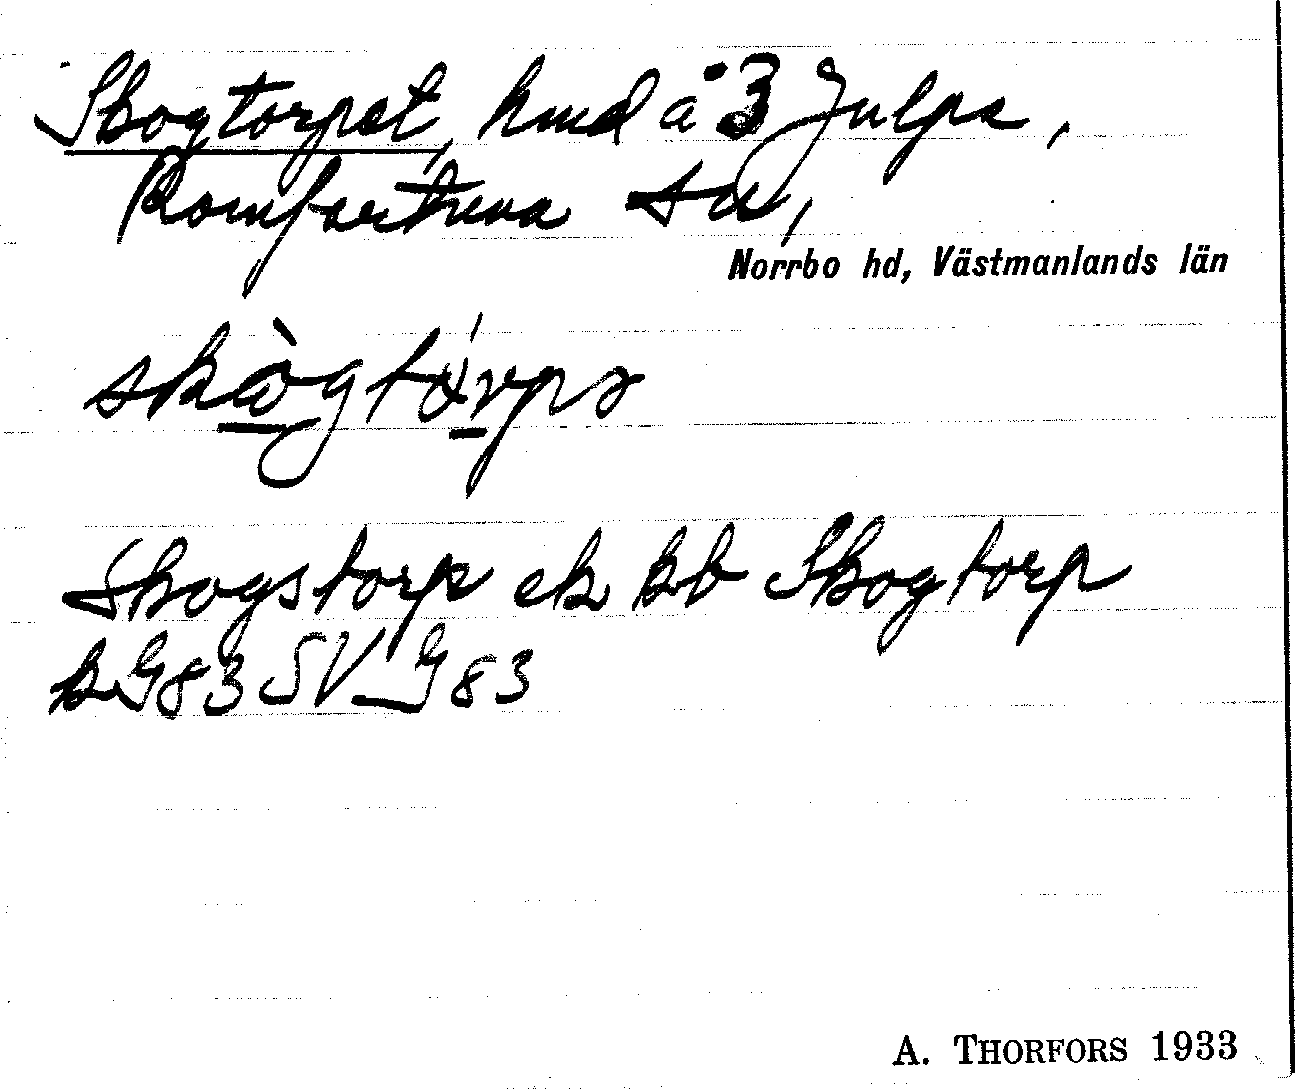 Skogtorpet, hmd å 3 Julpa,
Romfartuna sn,
Norrbo hd, Västmanlands län
skògtárpə
Skogstorp ek kb Skogtorp
k G83 SV G83
A. THORFORS 1933